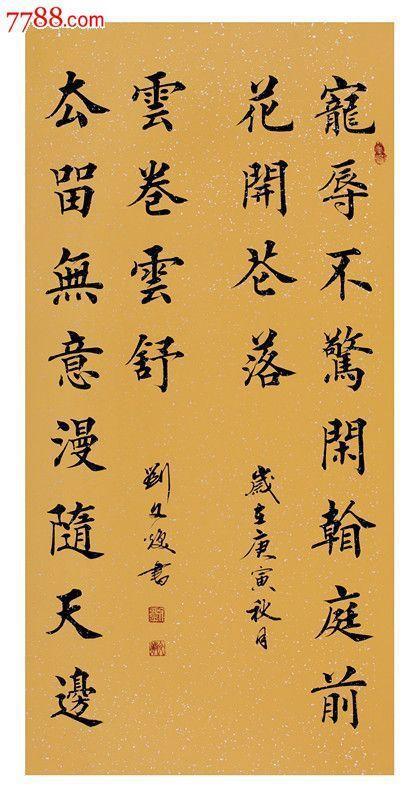 7788.com
寵辱不驚閑看庭前
花開芲落
歲在庚寅秋月
厺畱無意漫隨天邊
雲卷雲舒
劉文書